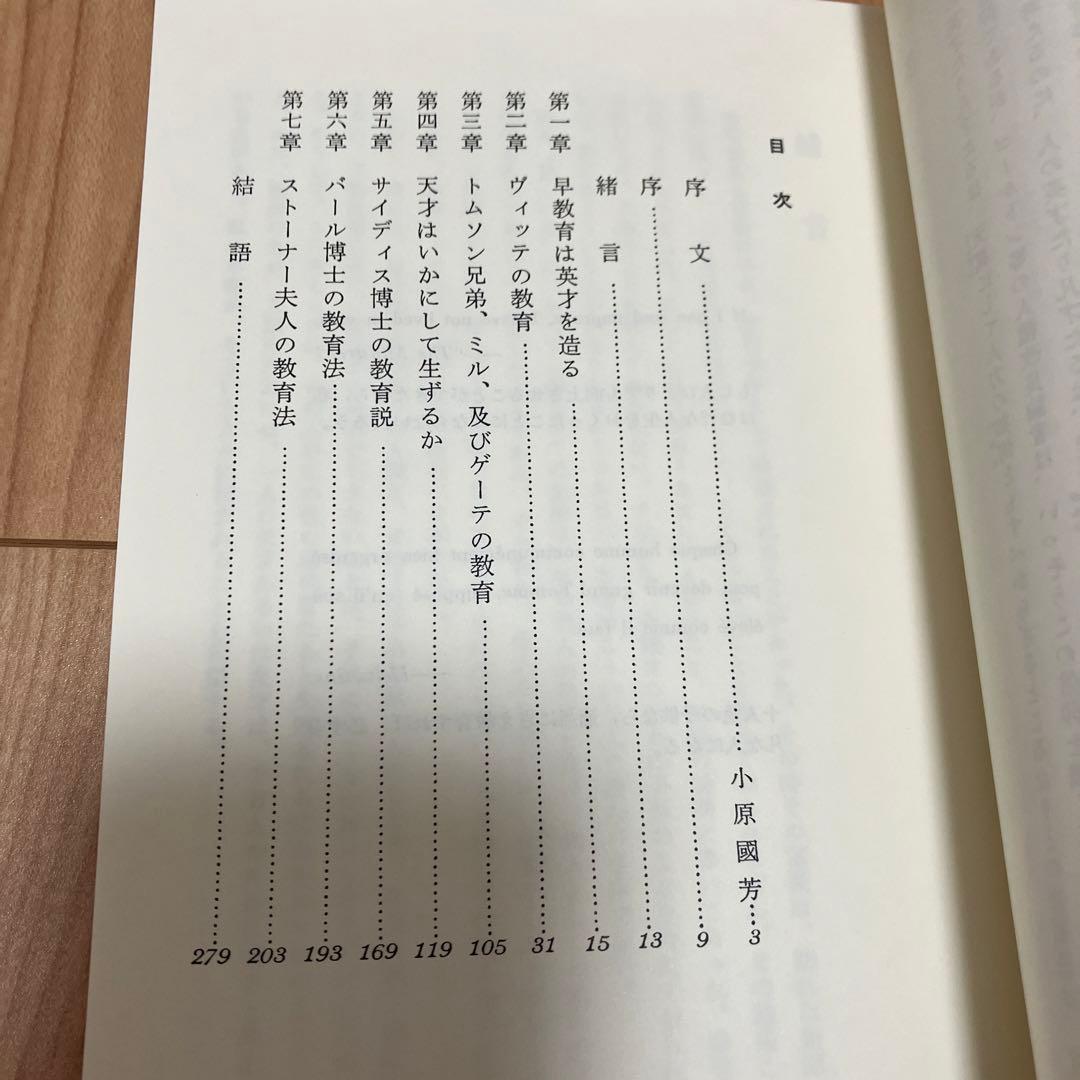 目次
序文……小原國芳…3
序……9
緒言……13
第一章 早教育は英才を造る……15
第二章 ヴィッテの教育……31
第三章 トムソン兄弟、ミル、及びゲーテの教育……105
第四章 天才はいかにして生ずるか……119
第五章 サイディス博士の教育説……169
第六章 バール博士の教育法……193
第七章 ストーナー夫人の教育法……203
結語……279